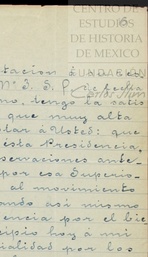 CENTRO DE
ESTUDIOS
DE HISTORIA
DE MEXICO
FUNDACIÓN
6
tación á su res
Nº 3. S. P. de fecha
mo, tengo la satis
que muy alta
tar á Usted: que
esta Presidencia,
servaciones ante
por esa Superio-
al movimiento
ando asi mismo
encia por el bie
cipio hoy á mi
ialidad por los